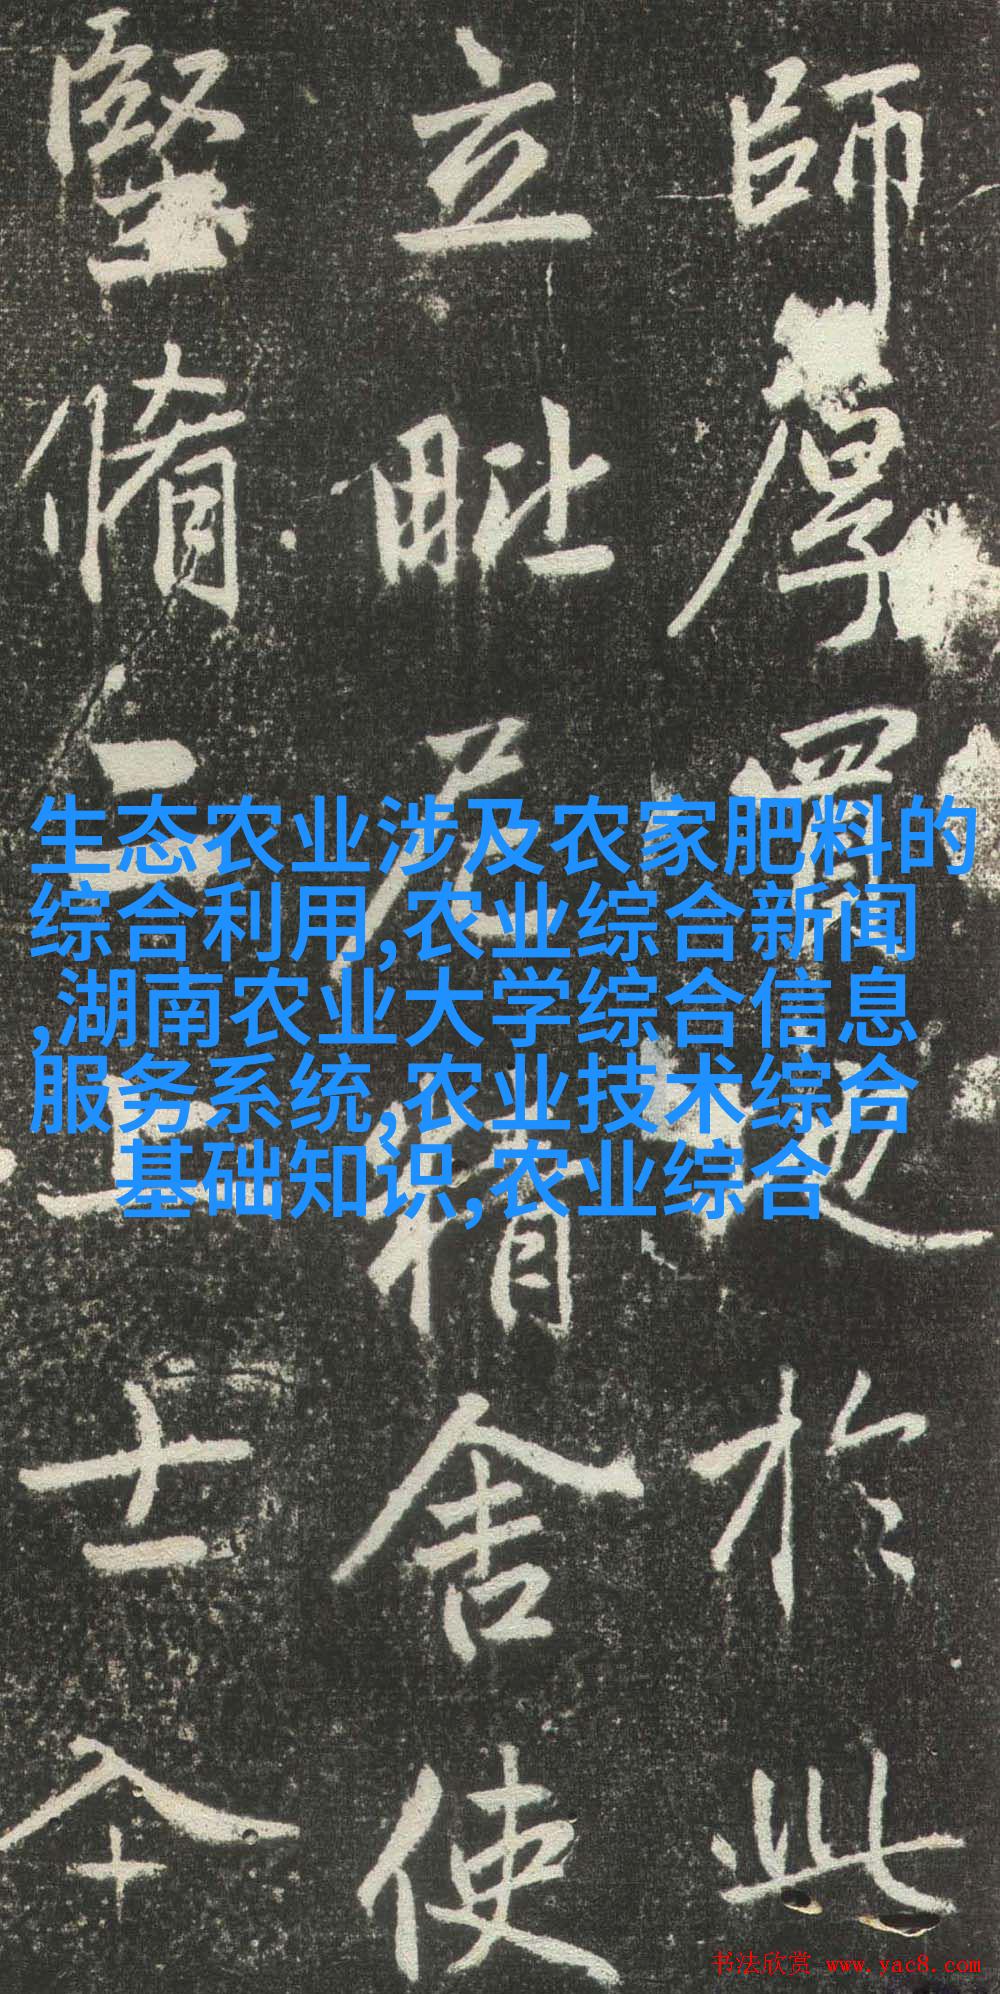 師厚於此
立毗尼精舍使
堅脩士
生态农业涉及农家肥料的
综合利用,农业综合新闻
,湖南农业大学综合信息
服务系统,农业技术综合
基础知识,农业综合
书法欣赏 www.yac8.com